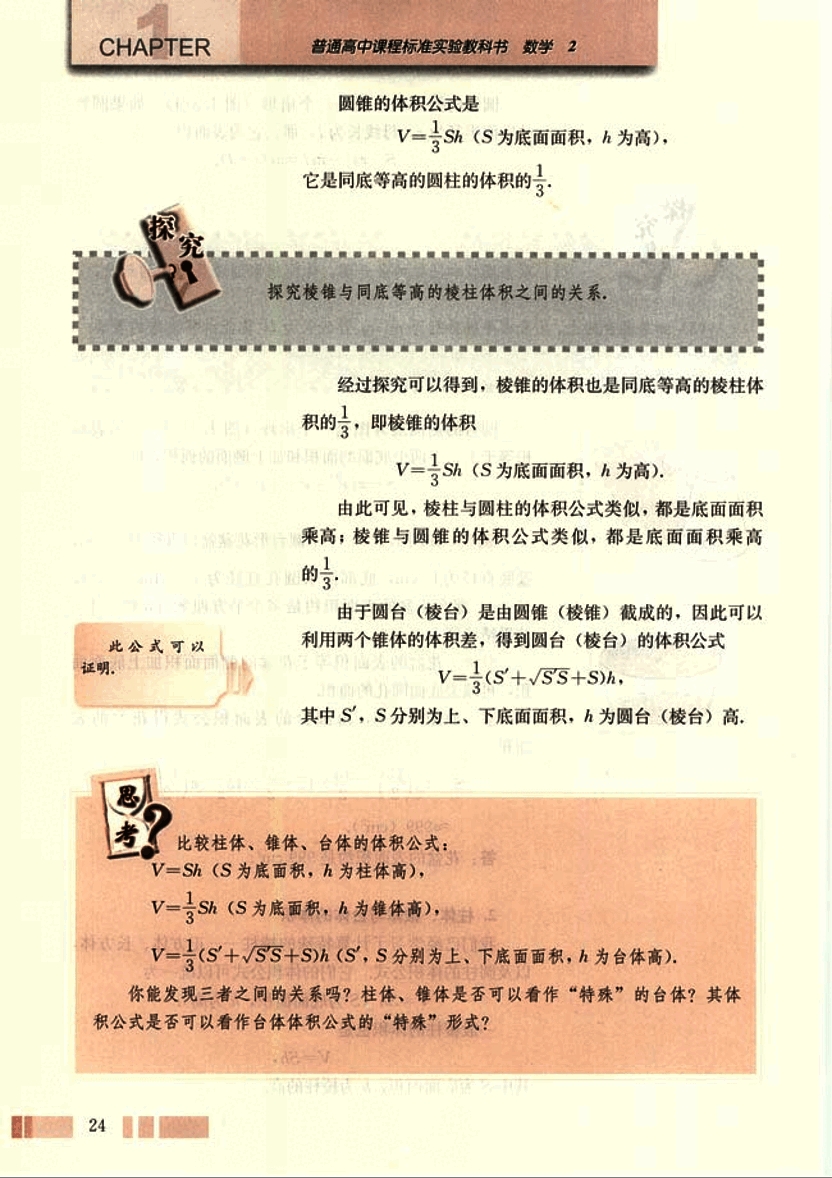 1
CHAPTER
普通高中课程标准实验教科书 数学 2
圆锥的体积公式是
V=1/3Sh（S为底面面积，h为高），
它是同底等高的圆柱的体积的1/3.
探究
探究棱锥与同底等高的棱柱体积之间的关系.
经过探究可以得到，棱锥的体积也是同底等高的棱柱体
积的1/3，即棱锥的体积
V=1/3Sh（S为底面面积，h为高）.
由此可见，棱柱与圆柱的体积公式类似，都是底面面积
乘高；棱锥与圆锥的体积公式类似，都是底面面积乘高
的1/3.
由于圆台（棱台）是由圆锥（棱锥）截成的，因此可以
利用两个锥体的体积差，得到圆台（棱台）的体积公式
此公式可以
证明.
V=1/3(S′+√S′S+S)h，
其中S′，S分别为上、下底面面积，h为圆台（棱台）高.
思考?
比较柱体、锥体、台体的体积公式：
V=Sh（S为底面积，h为柱体高），
V=1/3Sh（S为底面积，h为锥体高），
V=1/3(S′+√S′S+S)h（S′，S分别为上、下底面面积，h为台体高）.
你能发现三者之间的关系吗？柱体、锥体是否可以看作“特殊”的台体？其体
积公式是否可以看作台体体积公式的“特殊”形式？
24